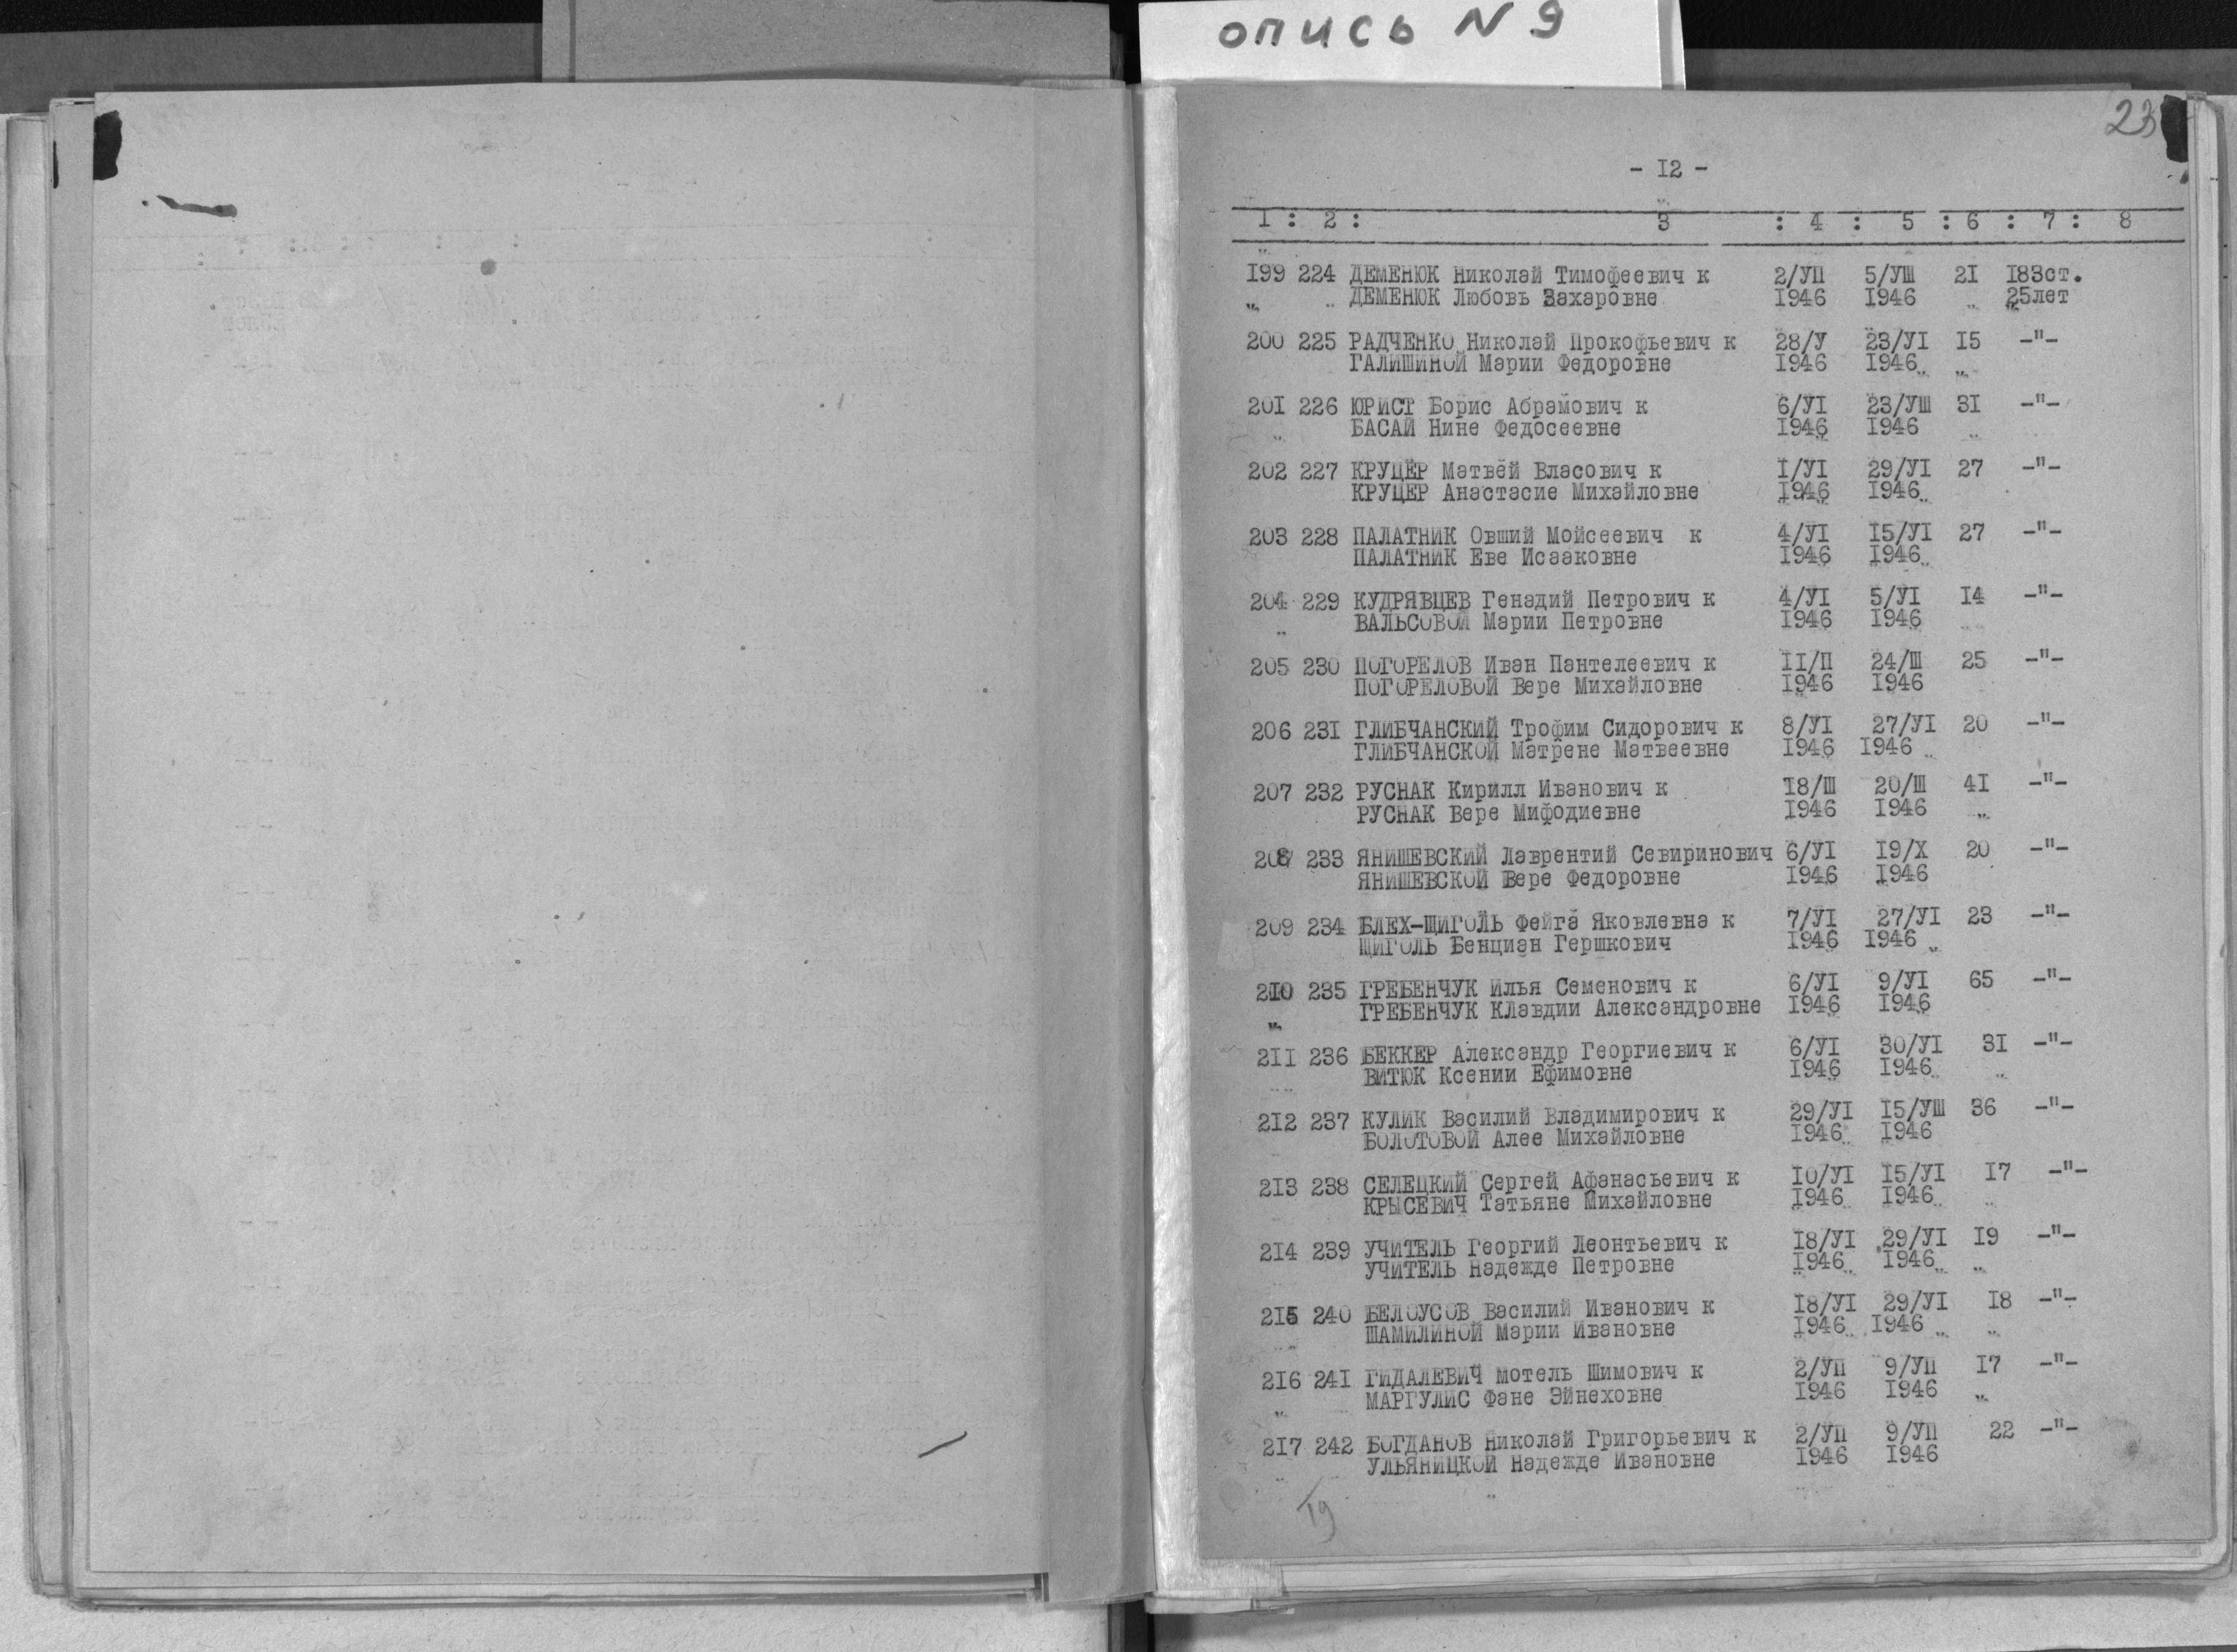 опись N 9
23
- I2 -
1 : 2 : 3 : 4 : 5 : 6 : 7 : 8
I99 224 ДЕМЕНЮК Николай Тимофеевич к 2/УП 5/УШ 2I I83ст.
" " ДЕМЕНЮК Любовь Захаровне I946 I946 " 25лет
200 225 РАДЧЕНКО Николай Прокофьевич к 28/У 23/УI I5 -"-
ГАЛИШИНОЙ Марии Федоровне I946 I946
20I 226 ЮРИСТ Борис Абрамович к 6/УI 23/УШ 3I -"-
БАСАЙ Нине Федосеевне I946 I946
202 227 КРУЦЕР Матвей Власович к I/УI 29/УI 27 -"-
КРУЦЕР Анастасие Михайловне I946 I946
203 228 ПАЛАТНИК Овший Мойсеевич к 4/УI I5/УI 27 -"-
ПАЛАТНИК Еве Исааковне I946 I946
204 229 КУДРЯВЦЕВ Генадий Петрович к 4/УI 5/УI I4 -"-
ВАЛЬСОВОЙ Марии Петровне I946 I946
205 230 ПОГОРЕЛОВ Иван Пантелеевич к II/П 24/Ш 25 -"-
ПОГОРЕЛОВОЙ Вере Михайловне I946 I946
206 23I ГЛИБЧАНСКИЙ Трофим Сидорович к 8/УI 27/УI 20 -"-
ГЛИБЧАНСКОЙ Матрене Матвеевне I946 I946
207 232 РУСНАК Кирилл Иванович к I8/Ш 20/Ш 4I -"-
РУСНАК Вере Мифодиевне I946 I946
208 233 ЯНИШЕВСКИЙ Лаврентий Севиринович 6/УI I9/X 20 -"-
ЯНИШЕВСКОЙ Вере Федоровне I946 I946
209 234 БЛЕХ-ЩИГОЛЬ Фейга Яковлевна к 7/УI 27/УI 23 -"-
ЩИГОЛЬ Бенциан Гершкович I946 I946
2I0 235 ГРЕБЕНЧУК Илья Семенович к 6/УI 9/УI 65 -"-
ГРЕБЕНЧУК КЛавдии Александровне I946 I946
2II 236 БЕККЕР Александр Георгиевич к 6/УI 30/УI 3I -"-
ВИТЮК Ксении Ефимовне I946 I946
2I2 237 КУЛИК Василий Владимирович к 29/УI I5/УШ 36 -"-
БОЛОТОВОЙ Алее Михайловне I946 I946
2I3 238 СЕЛЕЦКИЙ Сергей Афанасьевич к I0/УI I5/УI I7 -"-
КРЫСЕВИЧ Татьяне Михайловне I946 I946
2I4 239 УЧИТЕЛЬ Георгий Леонтьевич к I8/УI 29/УI I9 -"-
УЧИТЕЛЬ Надежде Петровне I946 I946
2I5 240 БЕЛОУСОВ Василий Иванович к I8/УI 29/УI I8 -"-
ШАМИЛИНОЙ Марии Ивановне I946 I946
2I6 24I ГИДАЛЕВИЧ Мотель Шимович к 2/УП 9/УП I7 -"-
МАРГУЛИС Фане Эйнеховне I946 I946
2I7 242 БОГДАНОВ Николай Григорьевич к 2/УП 9/УП 22 -"-
УЛЬЯНИЦКОЙ Надежде Ивановне I946 I946
19